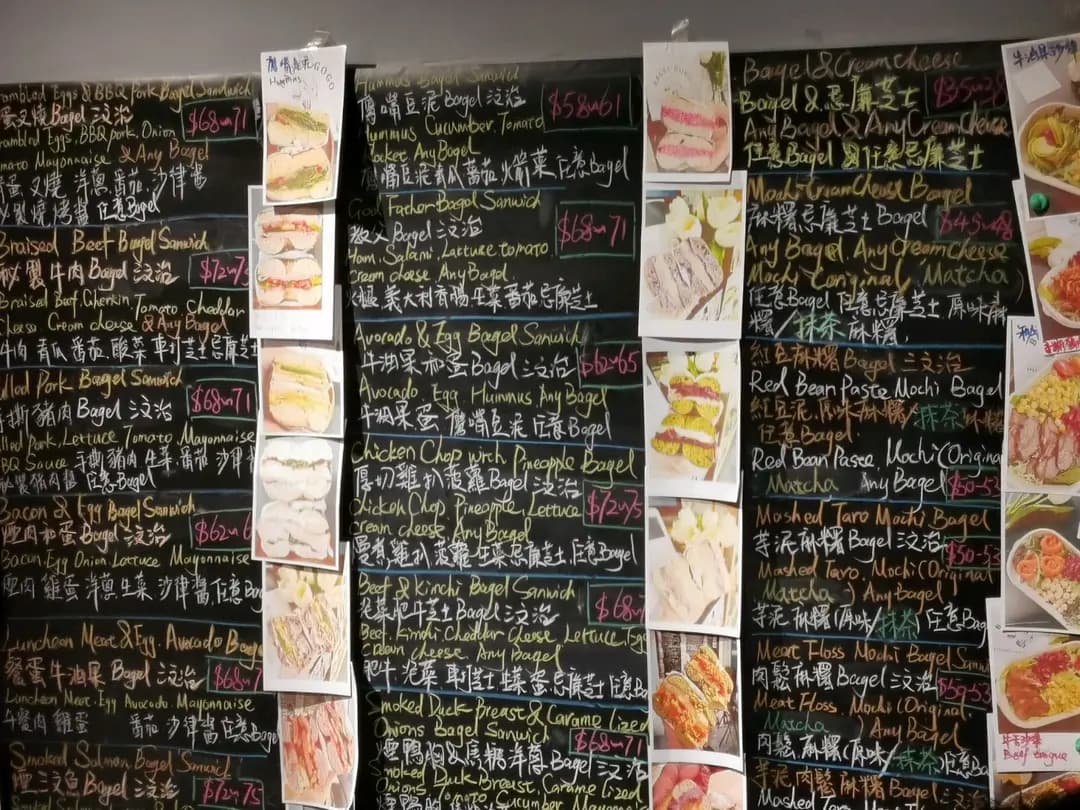 Scrambled Eggs & BBQ Pork Bagel Sanwich
蛋叉燒 Bagel 三文治 $68~71
Scrambled Eggs, BBQ pork, Onion
Tomato Mayonnaise & Any Bagel
蛋 叉燒 洋蔥 番茄 沙律醬
秘製燒烤醬 任意Bagel
Braised Beef Bagel Sanwich
秘製牛肉 Bagel 三文治 $72~75
Braised Beef, Gherkin, Tomato Cheddar
Cheese Cream cheese & Any Bagel
牛肉 青瓜 番茄 酸菜 車打芝士 忌廉芝士
Pulled Pork Bagel Sanwich
手撕豬肉 Bagel 三文治 $68~71
Pulled Pork, Lettuce Tomato, Mayonnaise
BBQ Sauce 手撕豬肉 生菜 番茄 沙律醬
任意Bagel
Bacon & Egg Bagel Sanwich
煙肉和蛋Bagel 三文治 $62~6
Bacon, Egg Onion Lettuce Mayonnaise
煙肉 雞蛋 洋蔥 生菜 沙律醬 任意Bag
Luncheon Meat & Egg, Avocado Bagel
餐蛋牛油果 Bagel 三文治 $68~7
Luncheon Meat, Egg Avocado, Mayonnaise
午餐肉 雞蛋 番茄 沙律醬 任意Bag
Smoked Salmon Bagel Sanwich
煙三文魚 Bagel 三文治 $72~75
鷹嘴豆泥
Hummus
GOGO
Hummus Bagel Sanwich
鷹嘴豆泥 Bagel 三文治 $58~61
Hummus Cucumber, Tomato
Rocket Any Bagel
鷹嘴豆泥 青瓜 番茄 火箭菜 任意Bagel
God Father Bagel Sanwich
教父 Bagel 三文治 $68~71
Ham, Salami, Lattuce, tomato,
Cream cheese Any Bagel,
火腿 義大利香腸 生菜 番茄 忌廉芝士
Avorado & Egg Bagel Sanwich
牛油果和蛋 Bagel 三文治 $62~65
Avocado Egg Hummus Any Bagel
牛油果 蛋 鷹嘴豆泥 任意Bagel
Chicken Chop with Pineapple Bagel
厚切雞扒菠蘿Bagel 三文治 $72~75
Chicken Chop, Pineapple, Lettuce
cream cheese, Any Bagel
雞扒 菠蘿 生菜 忌廉芝士, 任意Bagel
Beef & Kimchi Bagel Sanwich
泡菜肥牛芝士 Bagel 三文治 $68~7
Beef, Kimchi Cheddar Cheese Lettuce, Egg
Cream cheese Any Bagel
肥牛 泡菜 車打芝士 生菜 蛋 忌廉芝士 任意Ba
Smoked Duck Breast & Caramelized
Onions Bagel Sanwich $68~71
煙鴨胸 & 焦糖洋蔥 Bagel 三文治
Smoked Duck Breast, Caramelized
Bagel & Cream cheese $35~38
Bagel & 忌廉芝士
Any Bagel & Any Cream Cheese
任意 Bagel 任意忌廉芝士
Mochi Cream Cheese Bagel
麻糬忌廉芝士 Bagel $45~48
Any Bagel, Any Cream Cheese
Mochi (original, Matcha)
任意Bagel 任意忌廉芝士 原味麻
糬 / 抹茶 麻糬,
紅豆麻糬 Bagel 三文治
Red Bean Paste Mochi Bagel
紅豆泥, 原味麻糬 / 抹茶麻糬
任意 Bagel
Red Bean Paste, Mochi (Origina
Matcha Any Bagel $50~53
Mashed Taro Mochi Bagel
芋泥麻糬 Bagel 三文治 $50~53
Mashed Taro, Mochi (Original
Matcha) Any bagel
芋泥 麻糬 (原味 / 抹茶) 任意Bag
Meat Floss Mochi Bagel Sanw
肉鬆麻糬 Bagel 三文治 $50~53
Meat Floss, Mochi (Original.
Matcha) Any Bagel
肉鬆 麻糬 (原味 / 抹茶 任意Ba
芋泥 肉鬆 麻糬 Bagel 三文治
牛油果沙
牛舌沙律
Beef tongue